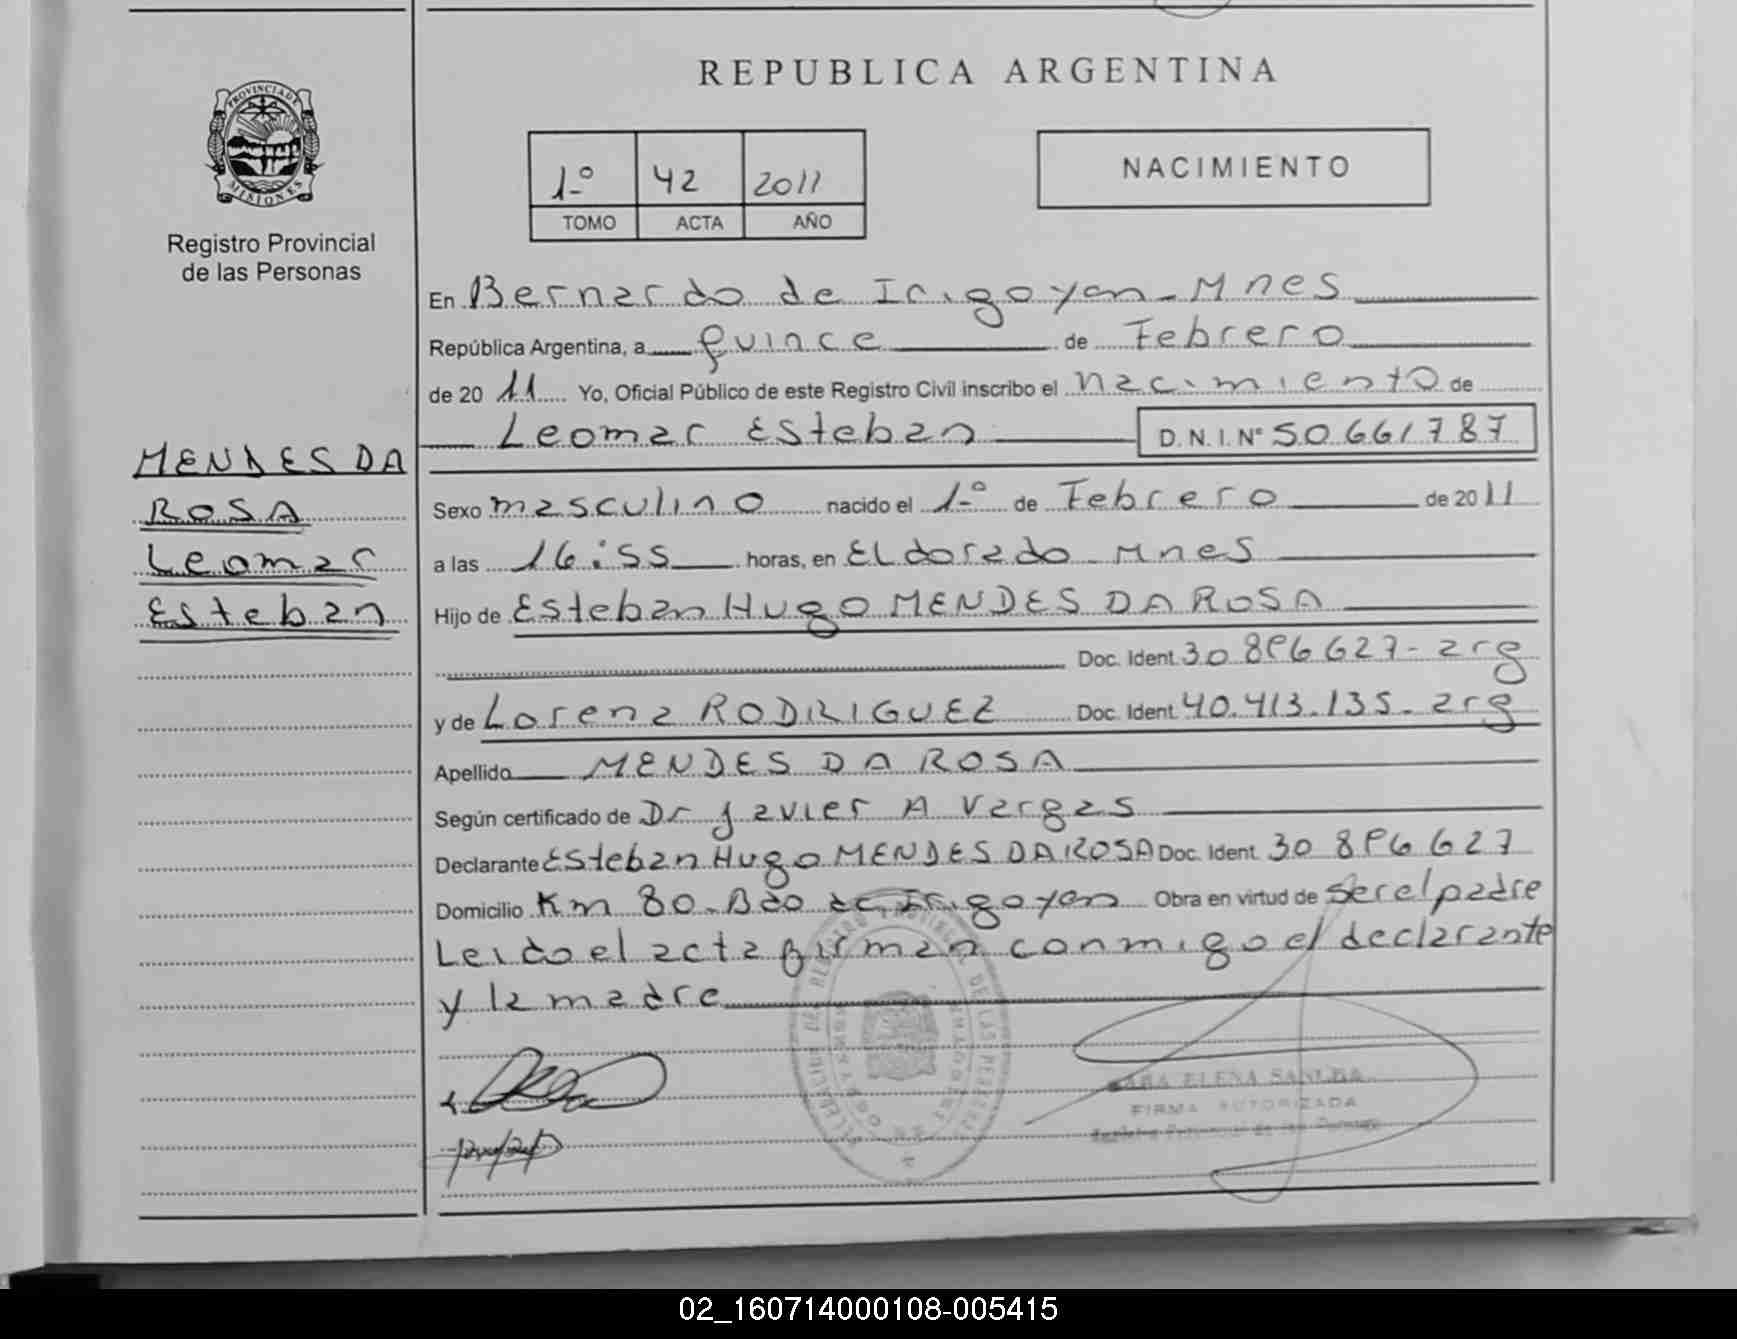 REPUBLICA ARGENTINA
PROVINCIA DE
MISIONES
Registro Provincial
de las Personas
1º 42 2011
TOMO ACTA AÑO
NACIMIENTO
En Bernardo de Irigoyen - Mnes
República Argentina, a quince de Febrero
de 20 11 Yo, Oficial Público de este Registro Civil inscribo el nacimiento de
Leomar Esteban D.N.I.Nº 50661787
MENDES DA
ROSA
Leomar
Esteban
Sexo masculino nacido el 1º de Febrero de 20 11
a las 16:55 horas, en Eldorado - Mnes
Hijo de Esteban Hugo MENDES DA ROSA
Doc. Ident. 30 896 627 - arg
y de Lorena RODRIGUEZ Doc. Ident. 40.413.135 - arg
Apellido MENDES DA ROSA
Según certificado de Dr Javier A Vargas
Declarante Esteban Hugo MENDES DA ROSA Doc. Ident. 30 896 627
Domicilio Km 80 - Bdo de Irigoyen Obra en virtud de ser el padre
Leido el acta firman conmigo el declarante
y la madre
ELENA
FIRMA AUTORIZADA
02_160714000108-005415